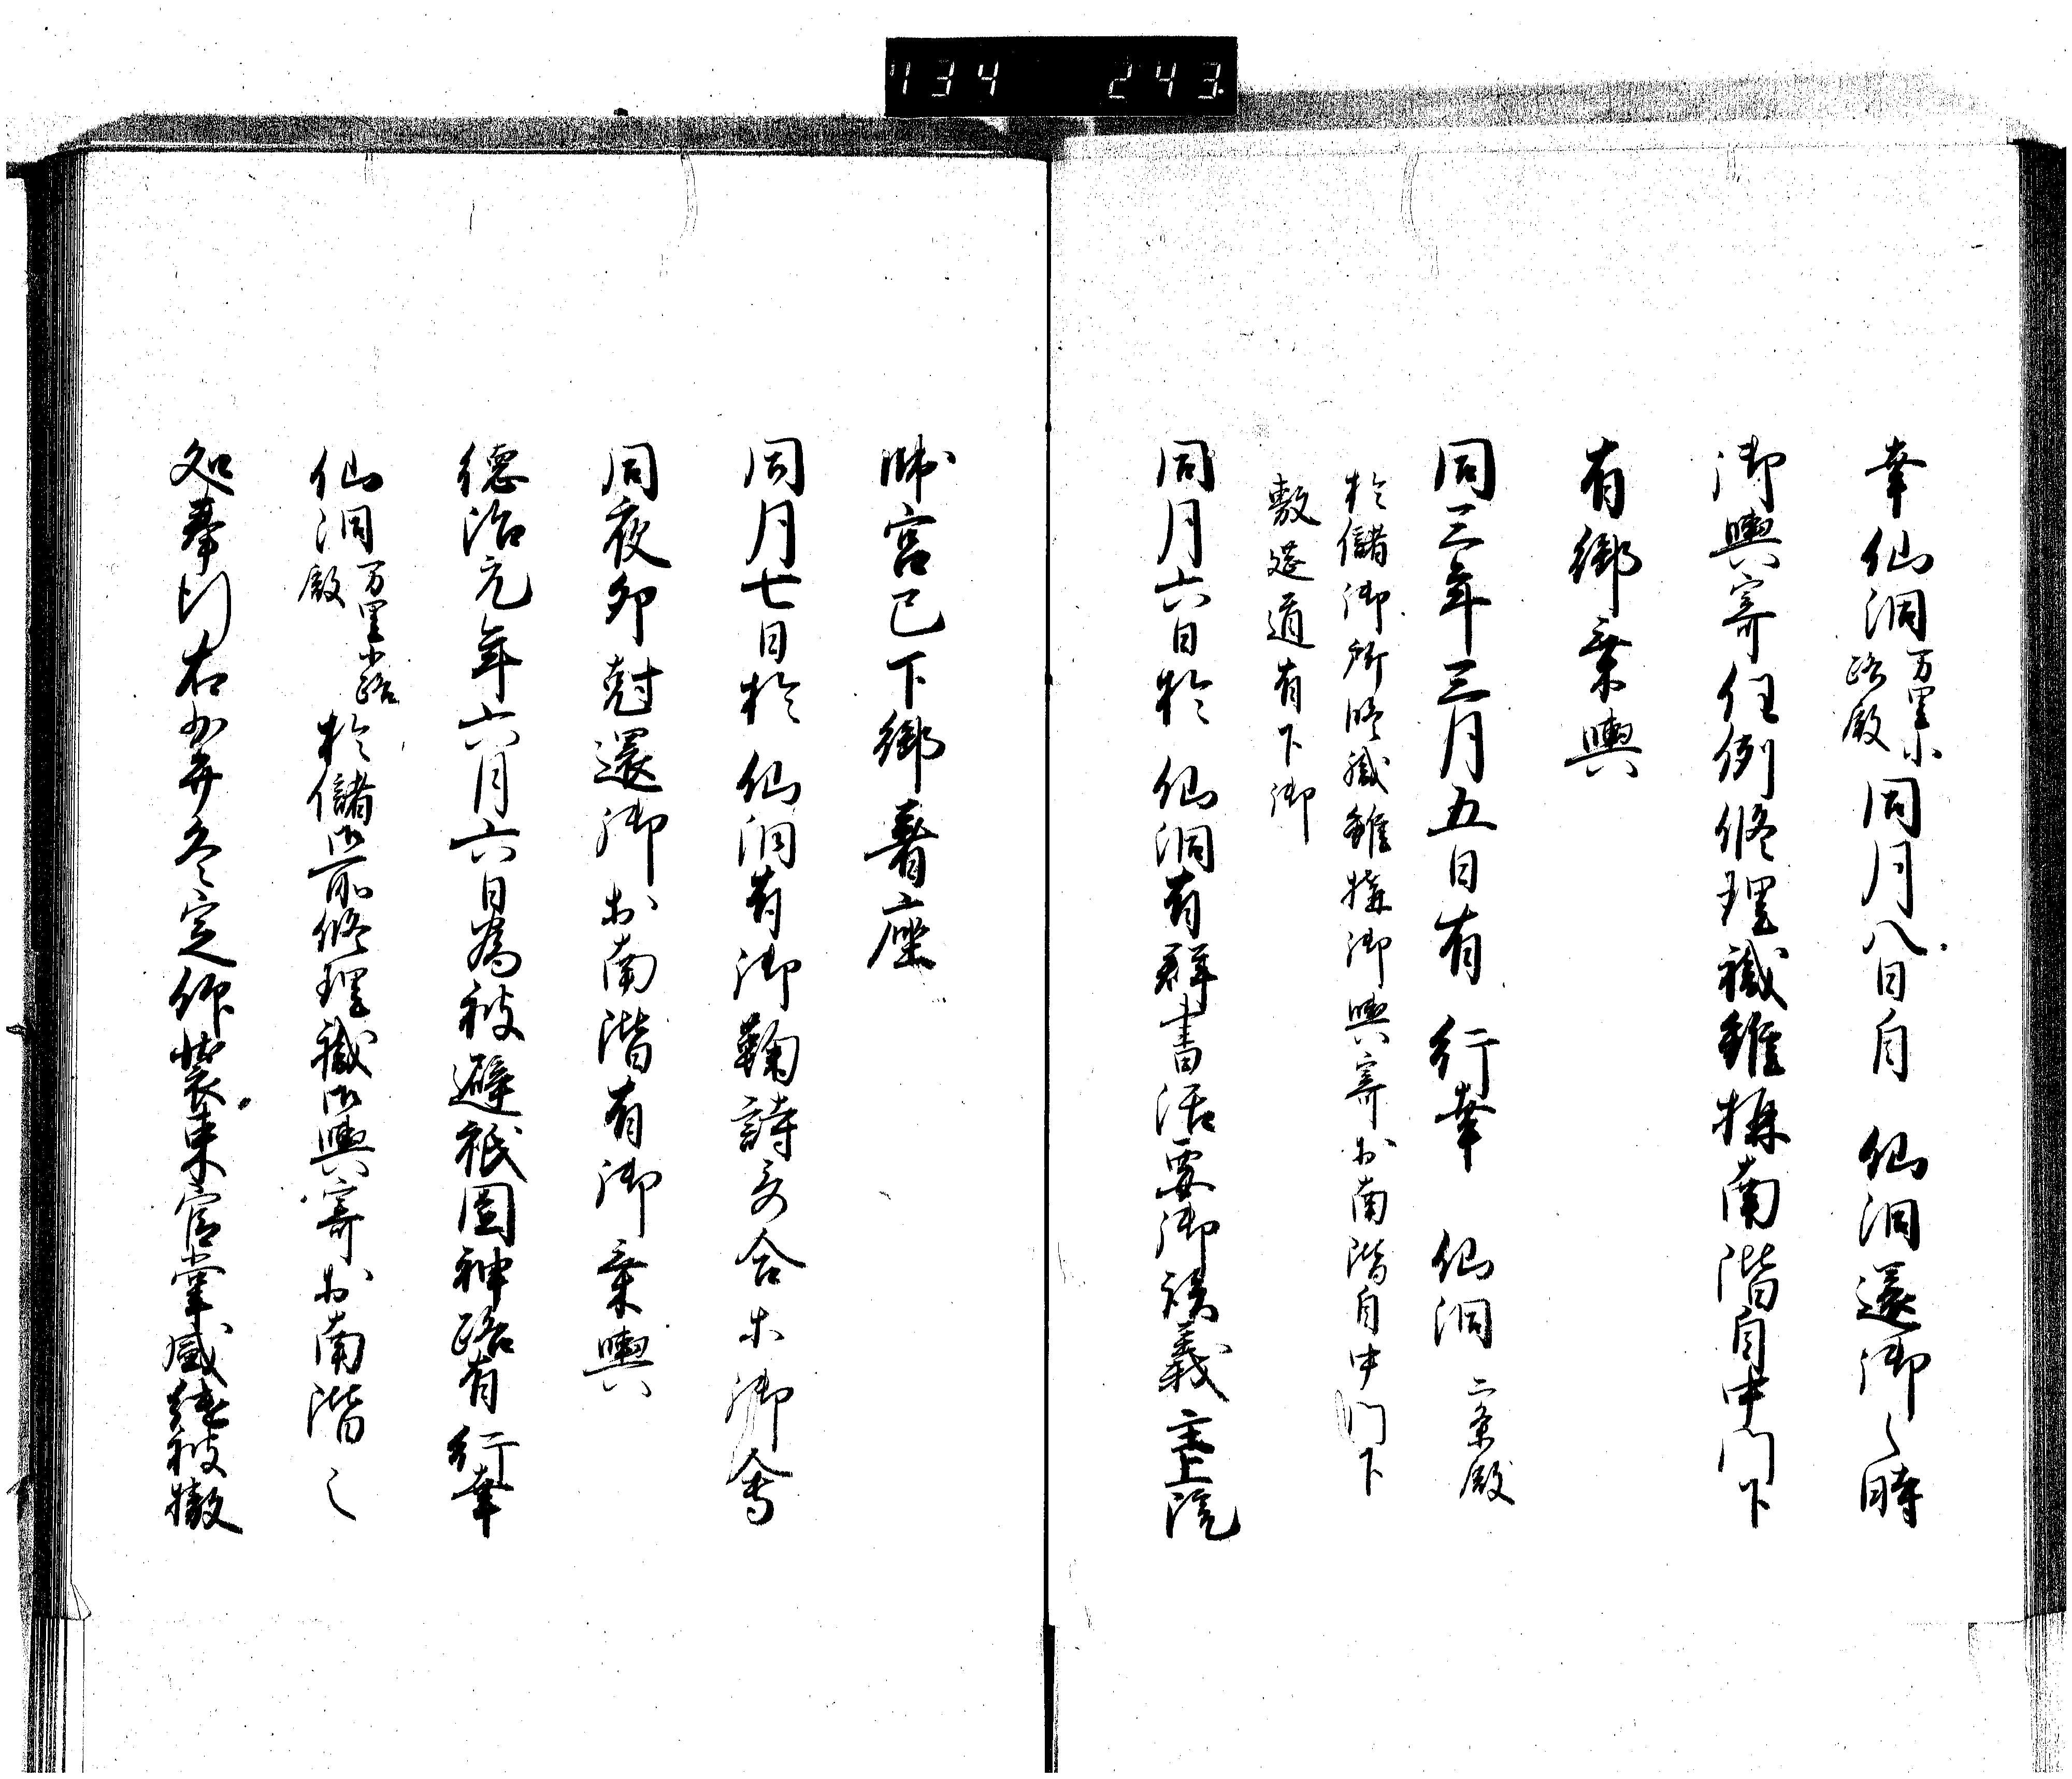 134 243
幸仙洞万里小路殿同月八日自仙洞還御之時
御輿寄任例修理職雖構南階自中門下
有御乗輿
同三年三月五日有行幸仙洞二条殿
於儲御所修職雖構御輿寄於南階自中門下
敷筵道有下御
同月六日於仙洞有群書治要御談義主上院
帥宮已下御着座
同月七日於仙洞有御鞠詩哥合木御会
同夜卯尅還御於南階有御乗輿
徳治元年六月六日為被避祇園神路有行幸
仙洞万里小路殿於儲御前修理職御輿寄於南階之
処奉行右少弁冬定仰装束官掌盛継被撤